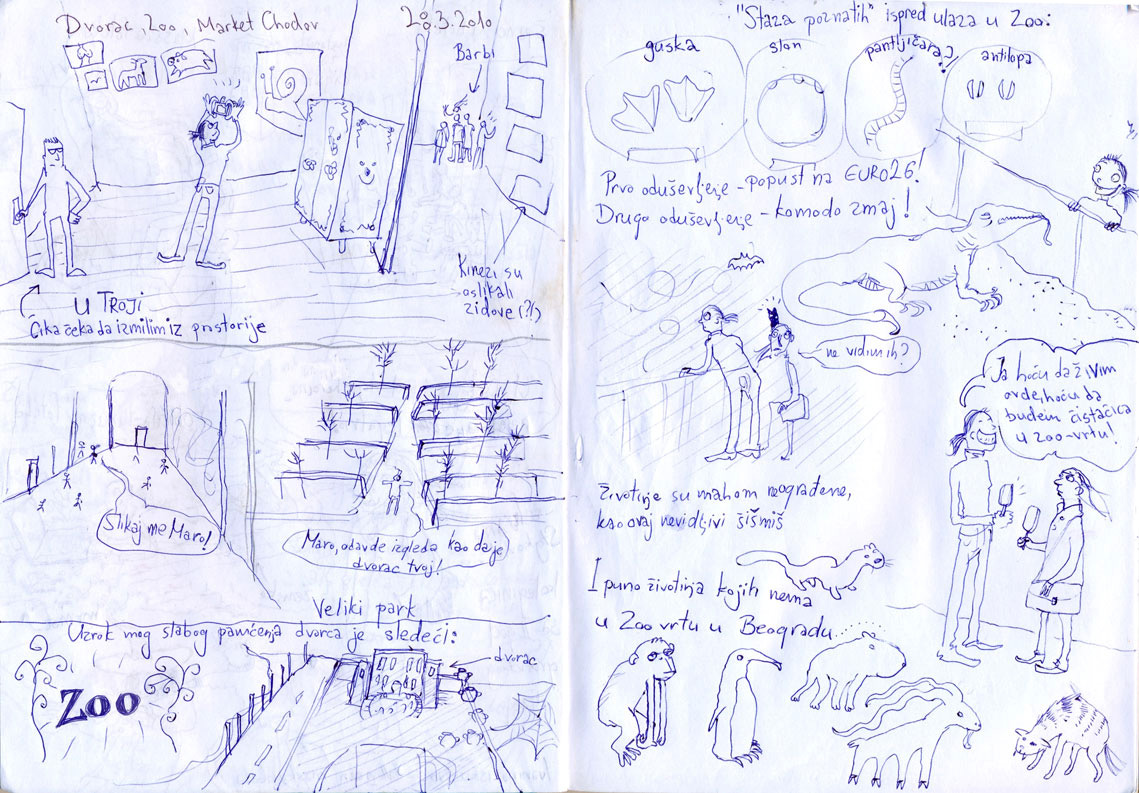 Dvorac, Zoo, Market Chodov
28.3.2010
Barbi
Kinezi su
oslikali
zidove (?!)
U TROJI
Čika čeka da izmilim iz prostorije
Slikaj me Maro!
Maro, odavde izgleda kao da je
dvorac tvoj!
Veliki park
Uzrok mog slabog pamćenja dvorca je sledeći:
dvorac
ZOO
"Staza poznatih" ispred ulaza u Zoo:
guska
slon
pantljičara?
antilopa
Prvo oduševljenje - popust na EURO26!
Drugo oduševljenje - komodo zmaj!
ne vidim ih?
Ja hoću da živim
ovde, hoću da
budem čistačica
u zoo-vrtu!
Životinje su mahom neograđene,
kao ovaj nevidljivi šišmiš
I puno životinja kojih nema
u Zoo vrtu u Beogradu...